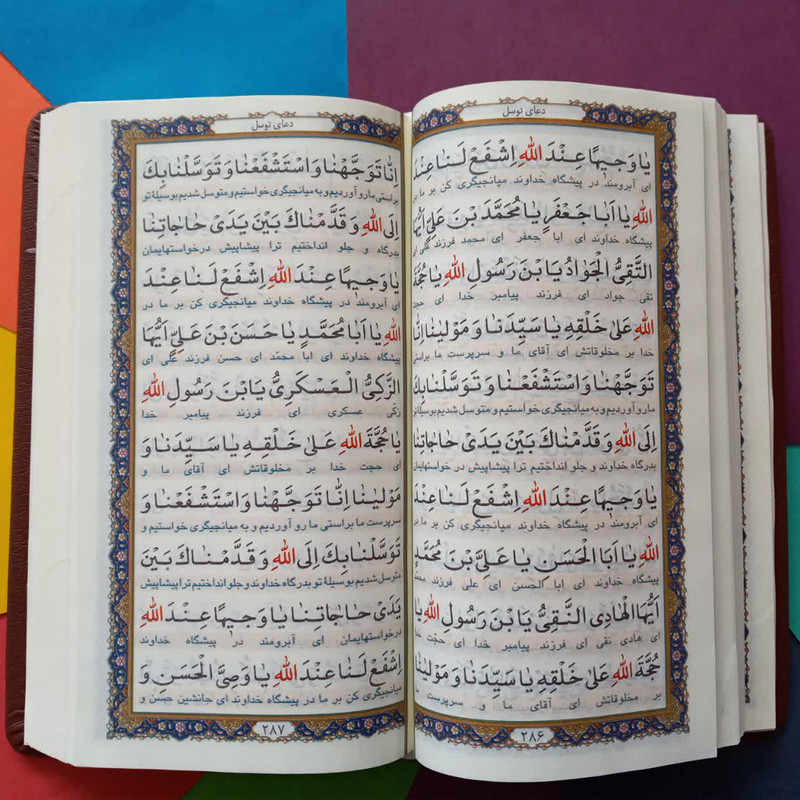 دعای توسل
یا وَجیهًا عِنْدَ اللهِ اِشْفَعْ لَنا عِنْدَ
ای آبرومند در پیشگاه خداوند میانجیگری کن بر ما در
اللهِ یا اَبا جَعْفَرٍ یا مُحَمَّدَ بْنَ عَلِیٍّ اَیُّهَا
پیشگاه خداوند ای ابا جعفر ای محمد فرزند علی ای
التَّقِیُّ الْجَوادُ یَا بْنَ رَسُولِ اللهِ یا حُجَّةَ
تقی جواد ای فرزند پیامبر خدا ای حجت
اللهِ عَلیٰ خَلْقِهِ یا سَیِّدَنا وَ مَوْلینا اِنّا
خدا بر مخلوقاتش ای آقای ما و سرپرست ما براستی
تَوَجَّهْنا وَ اسْتَشْفَعْنا وَ تَوَسَّلْنا بِكَ
ما رو آوردیم و به میانجیگری خواستیم و متوسل شدیم بوسیلهٔ تو
اِلَی اللهِ وَ قَدَّمْناكَ بَیْنَ یَدَیْ حاجاتِنا
بدرگاه خداوند و جلو انداختیم ترا پیشاپیش درخواستهایمان
یا وَجیهًا عِنْدَ اللهِ اِشْفَعْ لَنا عِنْدَ
ای آبرومند در پیشگاه خداوند میانجیگری کن بر ما در
اللهِ یا اَبَا الْحَسَنِ یا عَلِیَّ بْنَ مُحَمَّدٍ
پیشگاه خداوند ای ابا الحسن ای علی فرزند محمد
اَیُّهَا الْهادِی النَّقِیُّ یَا بْنَ رَسُولِ اللهِ یا
ای هادی نقی ای فرزند پیامبر خدا ای حجت خدا
حُجَّةَ اللهِ عَلیٰ خَلْقِهِ یا سَیِّدَنا وَ مَوْلینا
بر مخلوقاتش ای آقای ما و سرپرست ما
۲۸۶
دعای توسل
اِنّا تَوَجَّهْنا وَ اسْتَشْفَعْنا وَ تَوَسَّلْنا بِكَ
براستی ما رو آوردیم و به میانجیگری خواستیم و متوسل شدیم بوسیلهٔ تو
اِلَی اللهِ وَ قَدَّمْناكَ بَیْنَ یَدَیْ حاجاتِنا
بدرگاه خداوند و جلو انداختیم ترا پیشاپیش درخواستهایمان
یا وَجیهًا عِنْدَ اللهِ اِشْفَعْ لَنا عِنْدَ
ای آبرومند در پیشگاه خداوند میانجیگری کن بر ما در
اللهِ یا اَبا مُحَمَّدٍ یا حَسَنَ بْنَ عَلِیٍّ اَیُّهَا
پیشگاه خداوند ای ابا محمّد ای حسن فرزند علی ای
الزَّکِیُّ الْعَسْکَرِیُّ یَا بْنَ رَسُولِ اللهِ
زکی عسکری ای فرزند پیامبر خدا
یا حُجَّةَ اللهِ عَلیٰ خَلْقِهِ یا سَیِّدَنا وَ
ای حجت خدا بر مخلوقاتش ای آقای ما و
مَوْلینا اِنّا تَوَجَّهْنا وَ اسْتَشْفَعْنا وَ
سرپرست ما براستی ما رو آوردیم و به میانجیگری خواستیم و
تَوَسَّلْنا بِكَ اِلَی اللهِ وَ قَدَّمْناكَ بَیْنَ
متوسل شدیم بوسیلهٔ تو بدرگاه خداوند و جلو انداختیم ترا پیشاپیش
یَدَیْ حاجاتِنا یا وَجیهًا عِنْدَ اللهِ
درخواستهایمان ای آبرومند در پیشگاه خداوند
اِشْفَعْ لَنا عِنْدَ اللهِ یا وَصِیَّ الْحَسَنِ وَ
میانجیگری کن بر ما در پیشگاه خداوند ای جانشین حسن و
۲۸۷